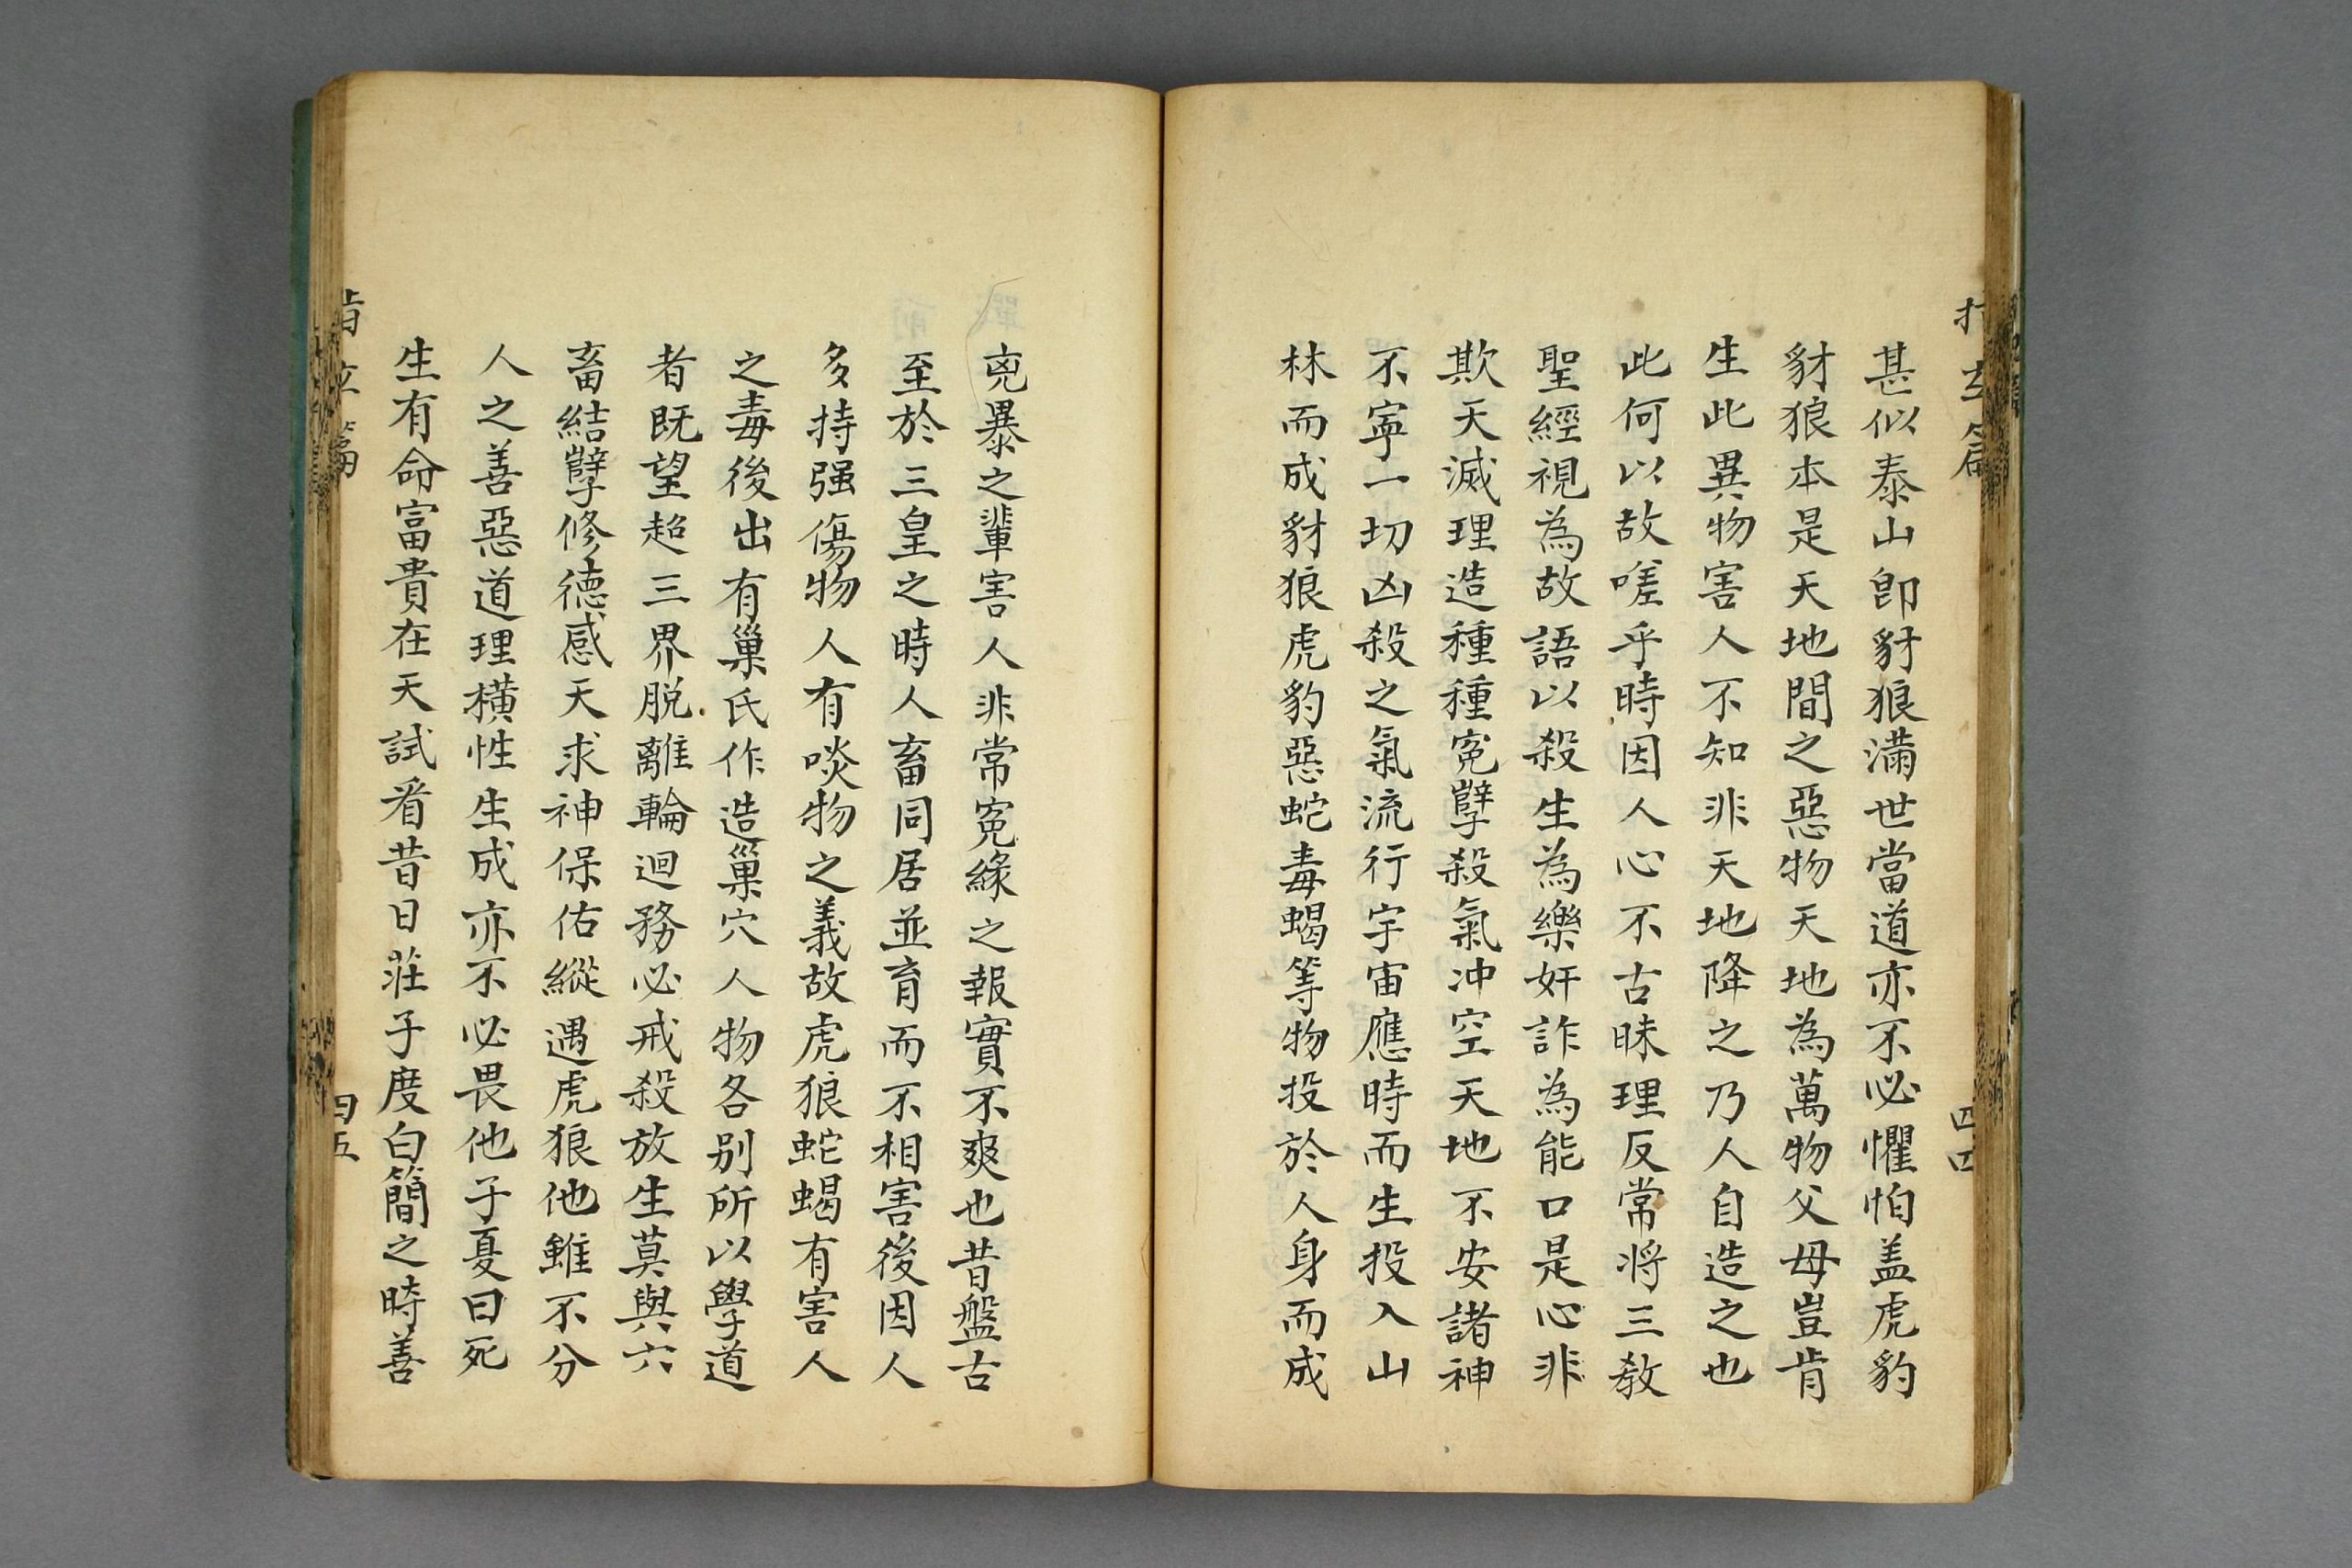 指玄篇
四四
甚似泰山即豺狼滿世當道亦不必懼怕盖虎豹
豺狼本是天地間之惡物天地為萬物父母豈肯
生此異物害人不知非天地降之乃人自造之也
此何以故嗟乎時因人心不古昧理反常將三教
聖經視為故語以殺生為樂奸詐為能口是心非
欺天滅理造種種寃孽殺氣冲空天地不安諸神
不寧一切凶殺之氣流行宇宙應時而生投入山
林而成豺狼虎豹惡蛇毒蝎等物投於人身而成
兇暴之輩害人非常寃緣之報實不爽也昔盤古
至於三皇之時人畜同居並育而不相害後因人
多持强傷物人有啖物之義故虎狼蛇蝎有害人
之毒後出有巢氏作造巢穴人物各别所以學道
者既望超三界脱離輪迴務必戒殺放生莫與六
畜結孽修德感天求神保佑縱遇虎狼他雖不分
人之善惡道理橫性生成亦不必畏他子夏曰死
生有命富貴在天試看昔日莊子度白簡之時善
指玄篇
四五